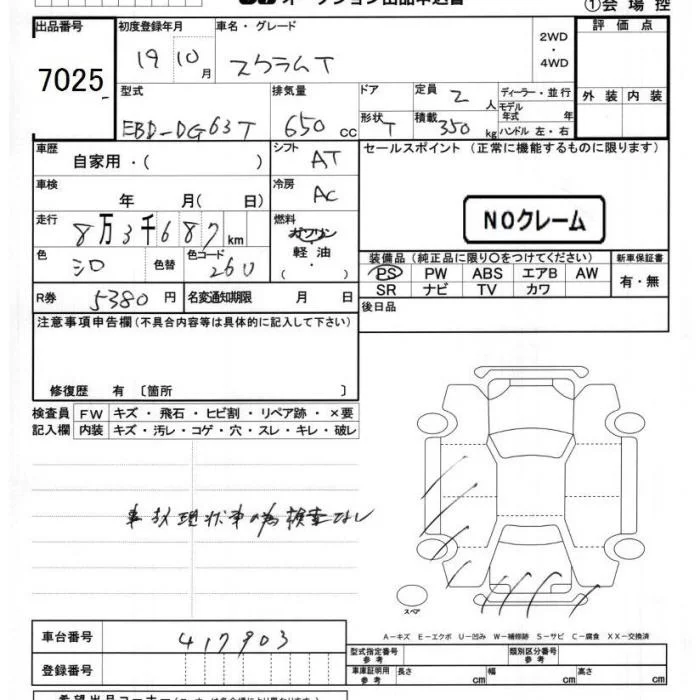 オークション出品申込書 ①会場控
出品番号 初度登録年月 車名・グレード 2WD・4WD 評価点
7025 19 10月 スクラムT
外装 内装
型式 排気量 ドア 定員 2人 ディーラー・並行
EBD-DG63T 650cc 形状 T 積載 350kg モデル年式 年 ハンドル 左・右
車歴 自家用・( ) シフト AT セールスポイント (正常に機能するものに限ります)
車検 年 月( 日) 冷房 AC
NOクレーム
走行 8万3千687km 燃料 ガソリン・軽油・( )
色 シロ 色替 色コード 26U
装備品(純正品に限り○をつけてください) 新車保証書
PS PW ABS エアB AW 有・無
SR ナビ TV カワ
R券 5380円 名変通知期限 月 日 後日品
注意事項申告欄(不具合内容等は具体的に記入して下さい)
修復歴 有 〔箇所 〕
検査員 FW キズ・飛石・ヒビ割・リペア跡・×要
記入欄 内装 キズ・汚レ・コゲ・穴・スレ・キレ・破レ
事故現状車の為検査なし
スペア
A-キズ E-エクボ U-凹み W-補修跡 S-サビ C-腐食 XX-交換済
車台番号 417903
型式指定番号 参考 類別区分番号 参考
登録番号 車庫証明用 参考 長さ cm 幅 cm 高さ cm